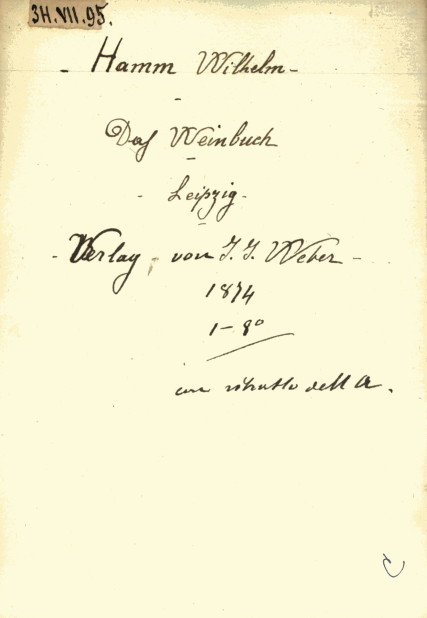 34.VII.95.
- Hamm Wilhelm -
-
Das Weinbuch
-
- Leipzig -
-
- Verlag von J. J. Weber -
1874
1 - 8°
con ritratto dell A.
C